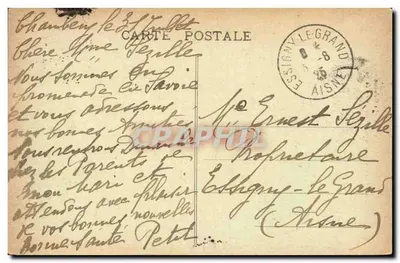 Chambéry le 31 Juillet
CARTE POSTALE
Chère Mme Sézille
Nous sommes en
promenade en Savoie
et vous adressons
nos bonnes Amitiés
Nous rentrons Dimanche
chez les Parents de
mon mari et
attendons avec plaisir
de vos bonnes nouvelles
Bonne Santé Petit
ESSIGNY-LE-GRAND
AISNE
Me Ernest Sézille
Propriétaire
Essigny-le-Grand
(Aisne)
CPARAMA